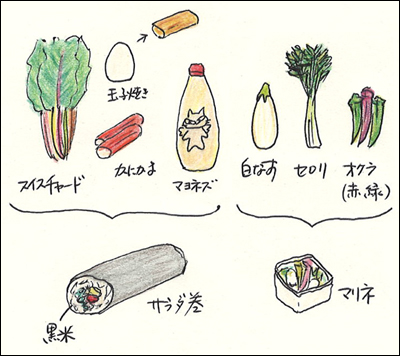 玉子焼き
スイスチャード
かにかま
マヨネズ
白なす
セロリ
オクラ
(赤、緑)
サラダ巻
黒米
マリネ